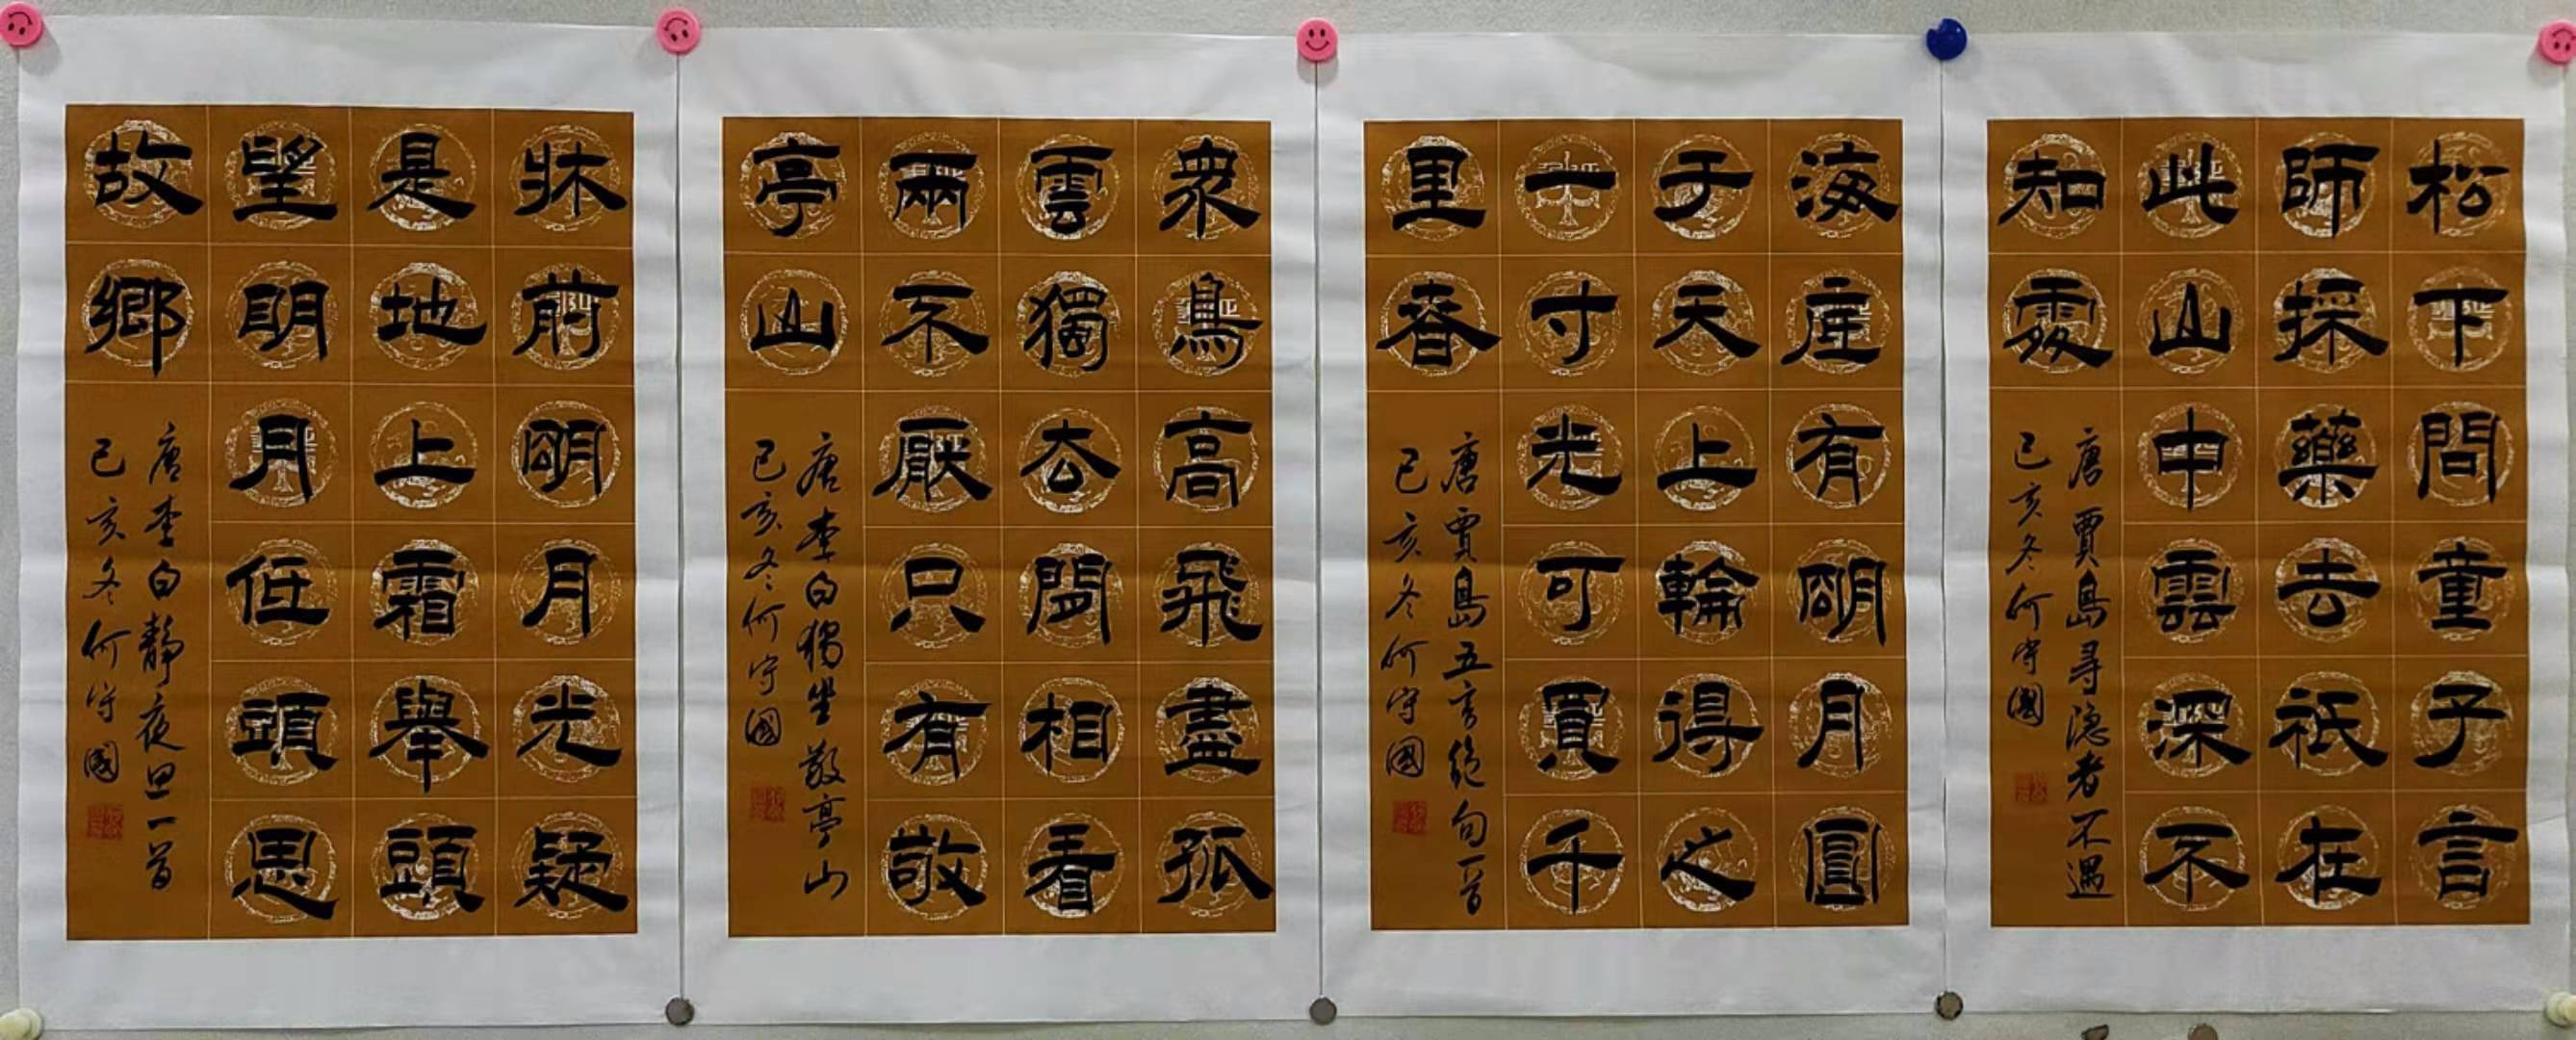 松下問童子言
師採藥去祇在
此山中雲深不
知處
唐賈島尋隐者不遇
己亥冬何守國
海底有朙月圓
于天上輪得之
一寸光可買千
里春
唐賈島五言絕句一首
己亥冬何守國
衆鳥高飛盡孤
雲獨去閒相看
兩不厭只有敬
亭山
唐李白獨坐敬亭山
己亥冬何守國
牀前朙月光疑
是地上霜舉頭
望眀月低頭思
故鄉
唐李白靜夜思一首
己亥冬何守國